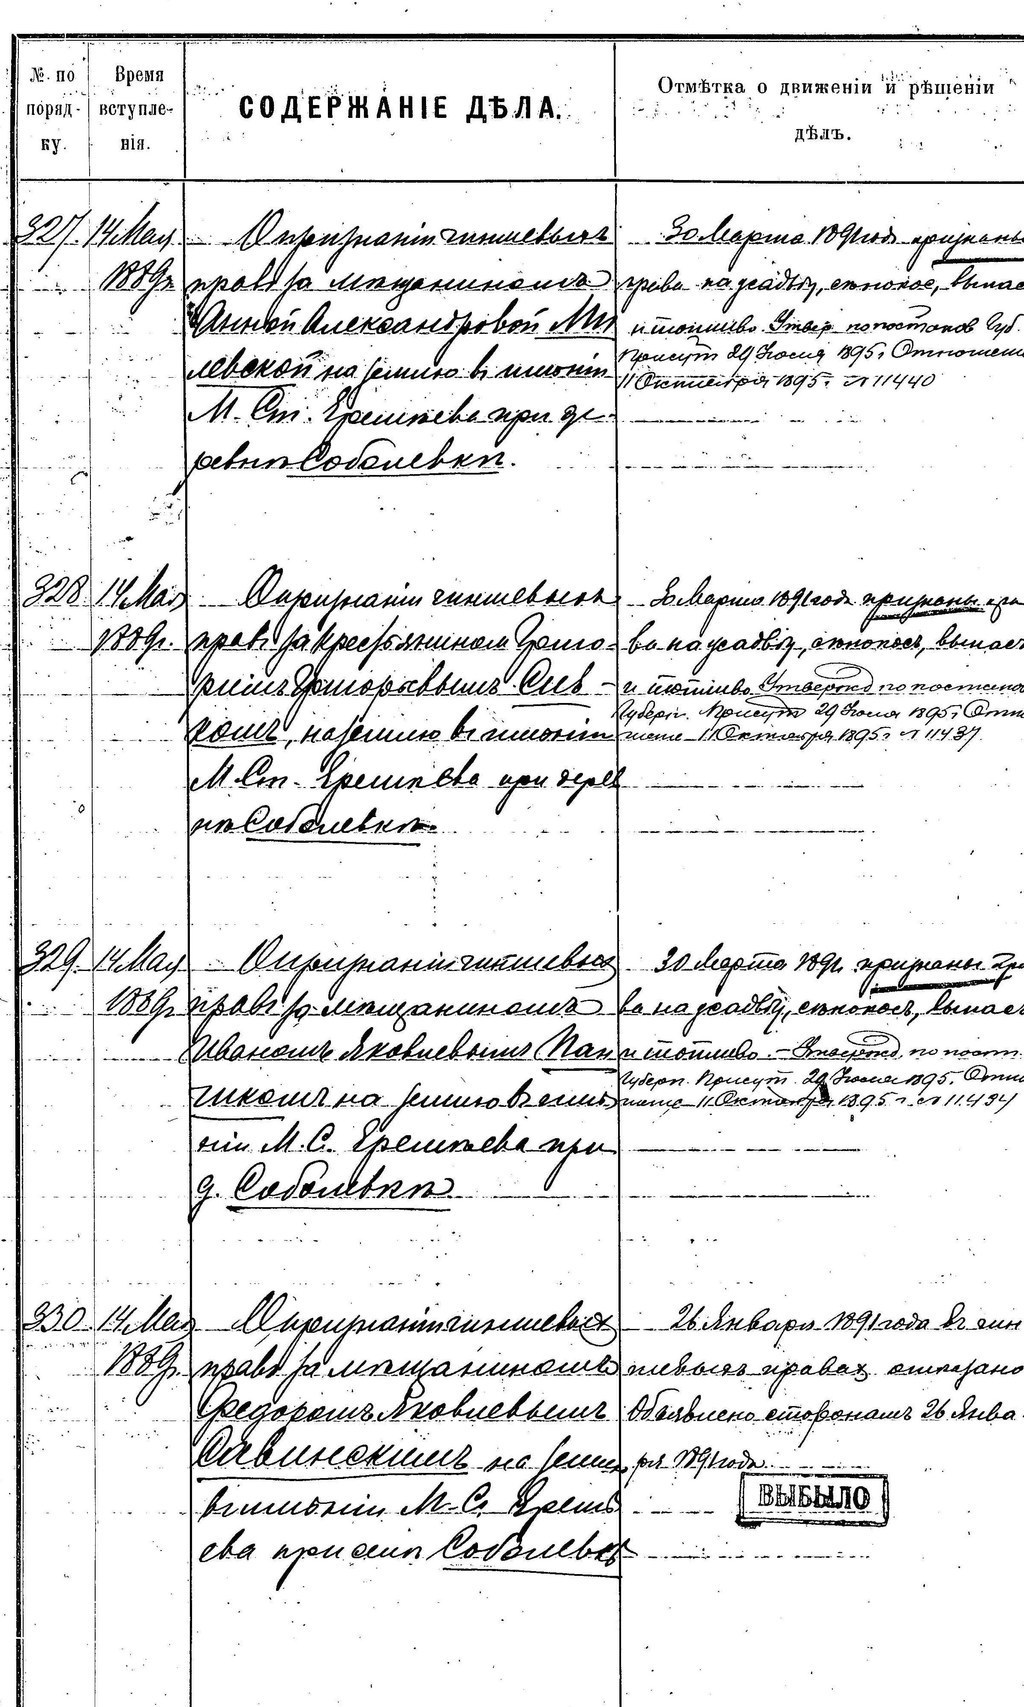 № по поряд-ку.
Время вступле-нія.
СОДЕРЖАНІЕ ДѢЛА.
Отмѣтка о движеніи и рѣшеніи дѣлъ.
327. 14 Мая 1889г.
О признаніи чиншевыхъ
правъ за мещаниномъ
Анной Александровой Ми
левской на землю въ имѣніи
М. Ст. Еремѣева при де-
ревнѣ Соболевкѣ.
30 Марта 1891 года признаны
права на усадьбу, сѣнокосъ, выпас
и топливо. Утвер. по постанов. Губ.
Присут. 29 Іюля 1895г. Отношені
11 Октября 1895г. № 11440
328 14 Мая 1889г.
О признаніи чиншевыхъ
правъ за крестьяниномъ Григо-
ріемъ Григорьевымъ
комъ, на землю въ имѣніи
М. Ст. Еремѣева при дерев
нѣ Соболевкѣ.
30 Марта 1891 года признаны пра
ва на усадьбу, сѣнокосъ, выпасъ
и топливо. Утвержд. по постано
Губерн. Присут. 29 Іюля 1895г. Отно
шеніе 11 Октября 1895г. № 11437
329. 14 Мая 1889г.
О признаніи чиншевыхъ
правъ за мещаниномъ
Иваномъ Яковлевымъ
на землю въ имѣ
ніи М. С. Еремѣева при
д. Соболевкѣ
30 Марта 1891г. признаны пра
ва на усадьбу, сѣнокосъ, выпасъ
и топливо. – Утвержд. по пост.
Губерн. Присут. 29 Іюля 1895г. Отно
шеніе 11 Октября 1895г. № 11434
330 14 Мая 1889г.
О признаніи чиншевыхъ
правъ за мещаниномъ
Федоромъ Яковлевымъ
Савинскимъ на землю
въ имѣніи М. С. Еремѣ
ева при селѣ Соболевкѣ
26 Января 1891 года въ чин
шевыхъ правахъ отказано
Объявлено сторонамъ 26 Янва
ря 1891 года
ВЫБЫЛО